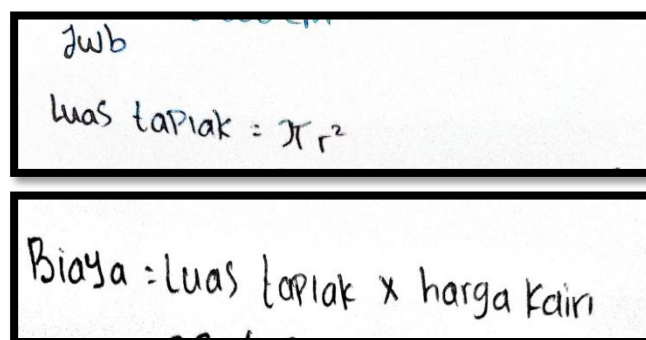 Jwb
Luas taplak = πr²
Biaya = Luas taplak x harga kain